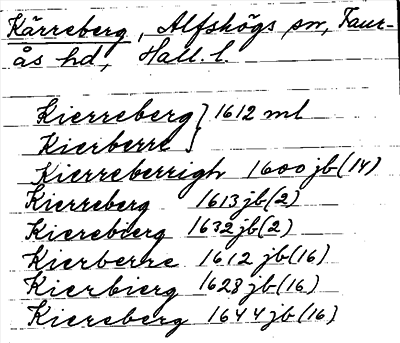 Kärreberg, Alfshögs sn, Faur-
ås hd, Hall. l.
Kierreberg } 1612 ml
Kierberre
Kierreberrigh 1600 jb(14)
Kierreberg 1613 jb(2)
Kierebierg 1632 jb(2)
Kierberre 1612 jb(16)
Kierbierg 1628 jb(16)
Kiereberg 1644 jb(16)